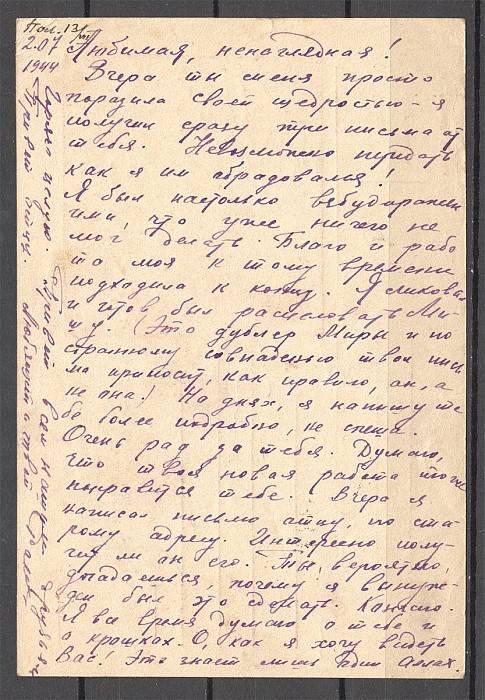 Пол. 13/VII
2.07
1944
Любимая, ненаглядная!
Вчера ты меня просто
поразила своей щедростью - я
получил сразу три письма от
тебя. Невозможно передать
как я им обрадовался!
Я был настолько взбудоражен
ими, что уже ничего не
мог делать. Благо и рабо
та моя к тому времени
подходила к концу. Я ликовал
и готов был расцеловать Ми-
шу. (Это дублер Миры и по
странному совпадению твои пись
ма приносит, как правило, он, а
не она. На днях, я напишу те
бе более подробно, не спеша.
Очень рад за тебя. Думаю,
что твоя новая работа тоже
понравится тебе. Вчера я
написал письмо отцу, по ста-
рому адресу. Интересно полу-
чит ли он его. Ты, вероятно,
догадаешься почему я вынуж-
ден был это сделать.
Я все время думаю о тебе и
о крошках. О, как я хочу видеть
Вас! Это знает лишь один аллах.
Горячо целую. Привет всем нашим друзьям.
Привет отцу. Любящий